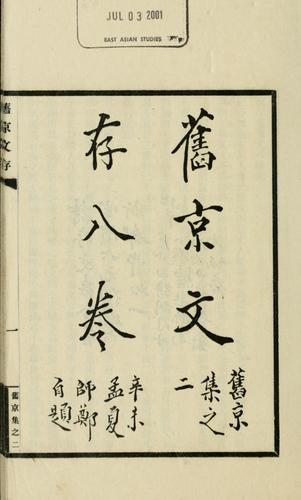 JUL 03 2001
EAST ASIAN STUDIES
舊京文
存八卷
舊京
集之
二
辛未
孟夏
師鄭
自題
舊京文存
一
舊京集之二